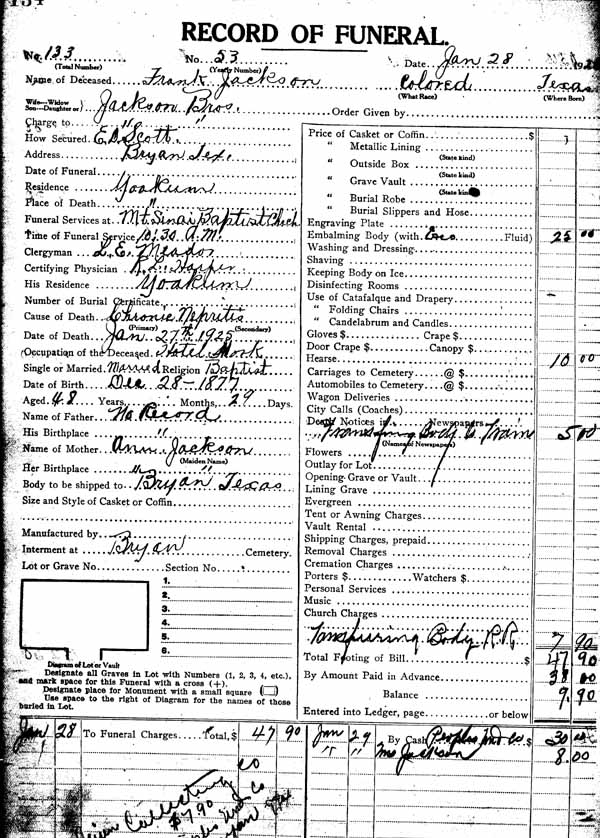 134
RECORD OF FUNERAL.
No. 133 No. 53 Date Jan 28 192
(Total Number) (Yearly Number)
Name of Deceased Frank Jackson Colored Texas
(What Race) (Where Born)
Wife—Widow
Son—Daughter or) Jackson Bros. Order Given by
Charge to " "
How Secured. E.D. Scott.
Address Bryan Tex.
Date of Funeral
Residence Yoakum
Place of Death "
Funeral Services at Mt. Sinai Baptist Chch
Time of Funeral Service 10:30 A.M.
Clergyman L.E. Meador
Certifying Physician Harper
His Residence Yoakum
Number of Burial Certificate
Cause of Death Chronic Nepritis
(Primary) (Secondary)
Date of Death Jan 27th 1925
Occupation of the Deceased Hotel Work
Single or Married Married Religion Baptist
Date of Birth Dec 28-1877
Aged 48 Years, Months, 29 Days.
Name of Father No Record
His Birthplace "
Name of Mother Ann Jackson
(Maiden Name)
Her Birthplace " "
Body to be shipped to Bryan Texas
Size and Style of Casket or Coffin
Manufactured by
Interment at Bryan Cemetery.
Lot or Grave No. Section No.
1.
2.
3.
4.
5.
6.
Diagram of Lot or Vault
Designate all Graves in Lot with Numbers (1, 2, 3, 4, etc.),
and mark space for this Funeral with a cross (+).
Designate place for Monument with a small square
Use space to the right of Diagram for the names of those
buried in Lot.
Price of Casket or Coffin $
" Metallic Lining
(State kind)
" Outside Box
(State kind)
" Grave Vault
(State kind)
" Burial Robe
" Burial Slippers and Hose
Engraving Plate
Embalming Body (with Eso Fluid) 25 00
Washing and Dressing
Shaving
Keeping Body on Ice
Disinfecting Rooms
Use of Catafalque and Drapery
" Folding Chairs
" Candelabrum and Candles
Gloves $ Crape $
Door Crape $ Canopy $
Hearse 10 00
Carriages to Cemetery @ $
Automobiles to Cemetery @ $
Wagon Deliveries
City Calls (Coaches)
Death Notices in Newspapers
(Names of Newspapers)
Body to Train 5 00
Flowers
Outlay for Lot
Opening Grave or Vault
Lining Grave
Evergreen
Tent or Awning Charges
Vault Rental
Shipping Charges, prepaid
Removal Charges
Cremation Charges
Porters $ Watchers $
Personal Services
Music
Church Charges
Body R.R. 7 90
Total Footing of Bill $ 47 90
By Amount Paid in Advance 38 00
Balance 9.90
Entered into Ledger, page or below
Jan 28 To Funeral Charges Total, $ 47 90 Jan 29 By Cash Peoples Und Co. $ 30 00
" " Mrs Jackson 8.00
Collecting Co
$7.90
Und Co